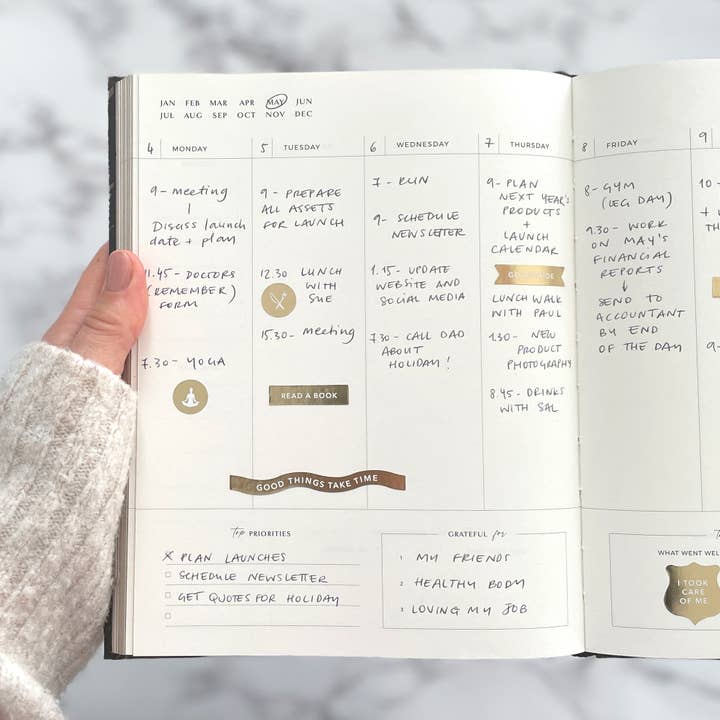 JAN FEB MAR APR MAY JUN
JUL AUG SEP OCT NOV DEC
4 MONDAY
9 - meeting
Discuss launch
date + plan
11.45 - DOCTORS
(REMEMBER)
FORM
7.30 - YOGA
5 TUESDAY
9 - PREPARE
ALL ASSETS
FOR LAUNCH
12.30 LUNCH
WITH
SUE
15.30 - meeting
READ A BOOK
GOOD THINGS TAKE TIME
6 WEDNESDAY
7 - RUN
9 - SCHEDULE
NEWSLETTER
1.15 - UPDATE
WEBSITE AND
SOCIAL MEDIA
7.30 - CALL DAD
ABOUT
HOLIDAY!
7 THURSDAY
9 - PLAN
NEXT YEAR'S
PRODUCTS
+
LAUNCH
CALENDAR
LUNCH WALK
WITH PAUL
1.30 - NEW
PRODUCT
PHOTOGRAPHY
8.45 - DRINKS
WITH SAL
8 FRIDAY
8 - GYM
(LEG DAY)
9.30 - WORK
ON MAY'S
FINANCIAL
REPORTS
SEND TO
ACCOUNTANT
BY END
OF THE DAY
9
10 -
9 -
Top PRIORITIES
X PLAN LAUNCHES
SCHEDULE NEWSLETTER
GET QUOTES FOR HOLIDAY
GRATEFUL for
1 MY FRIENDS
2 HEALTHY BODY
3 LOVING MY JOB
WHAT WENT WEL
I TOOK
CARE
OF ME